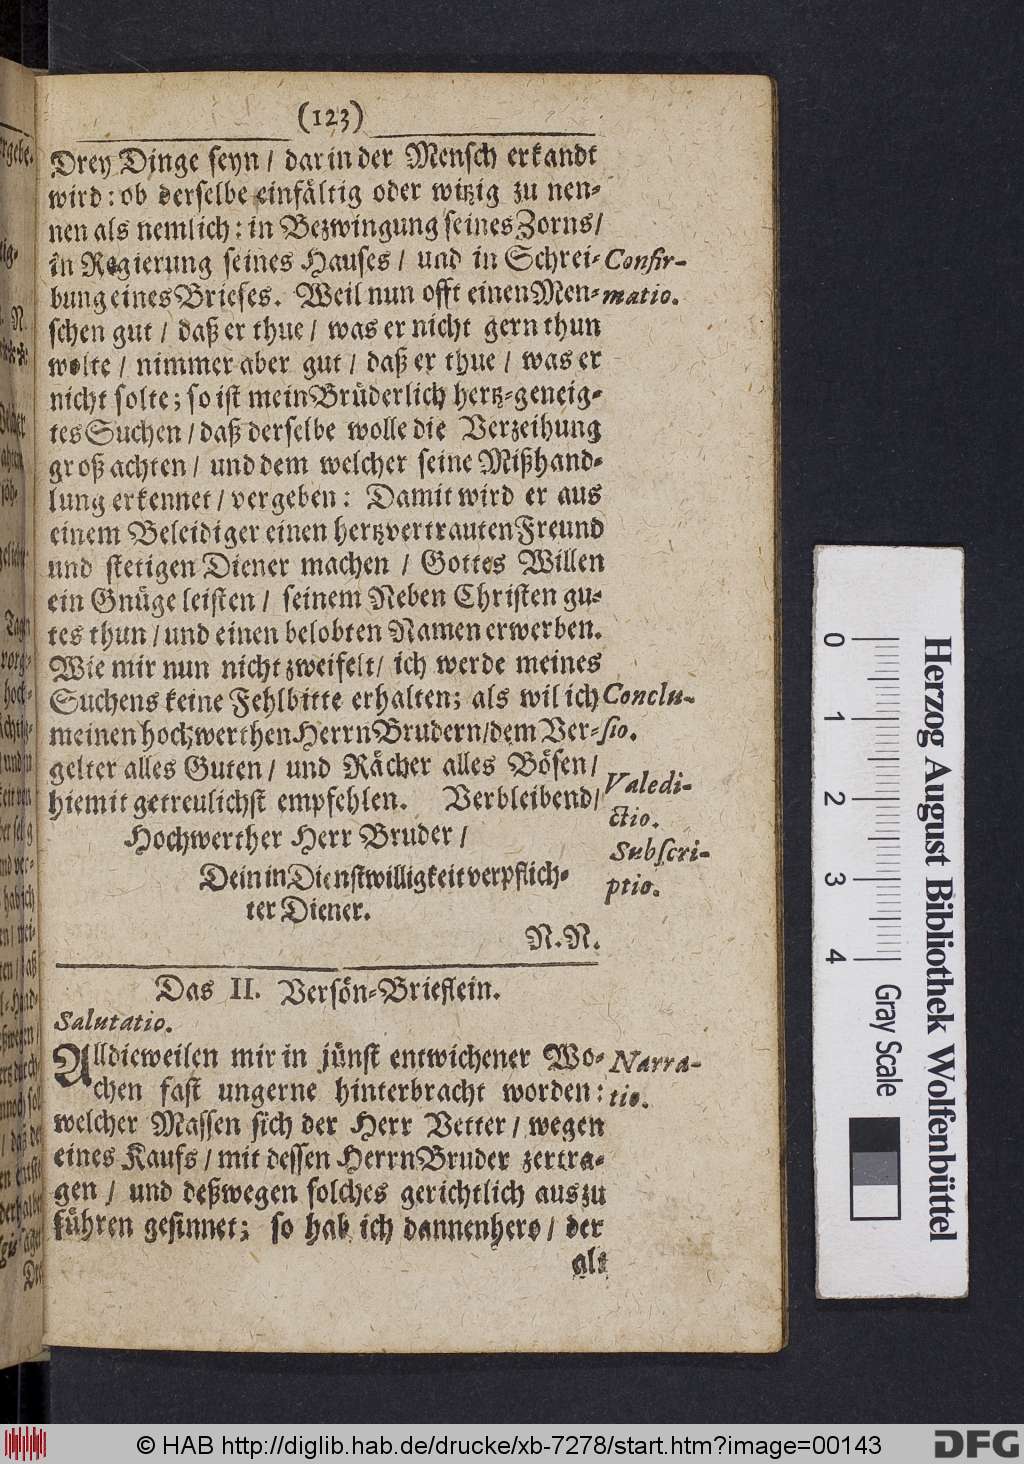 (123)
Drey Dinge seyn / darin der Mensch erkandt
wird: ob derselbe einfältig oder witzig zu nen-
nen als nemlich: in Bezwingung seines Zorns /
in Regierung seines Hauses / und in Schrei- Confir-
bung eines Briefes. Weil nun offt einen Men- matio.
schen gut / daß er thue / was er nicht gern thun
wolte / nimmer aber gut / daß er thue / was er
nicht solte; so ist mein Brüderlich hertz-geneig-
tes Suchen / daß derselbe wolle die Verzeihung
groß achten / und dem welcher seine Mißhand-
lung erkennet / vergeben: Damit wird er aus
einem Beleidiger einen hertzvertrauten Freund
und stetigen Diener machen / Gottes Willen
ein Gnüge leisten / seinem Neben Christen gu-
tes thun / und einen belobten Namen erwerben.
Wie mir nun nicht zweifelt / ich werde meines
Suchens keine Fehlbitte erhalten; als wil ich Conclu-
meinen hochwerthen Herrn Brudern / dem Ver- sio.
gelter alles Guten / und Rächer alles Bösen /
hiemit getreulichst empfehlen. Verbleibend / Valedi-
ctio.
Hochwerther Herr Bruder /
Subscri-
Dein in Dienstwilligkeit verpflich- ptio.
ter Diener.
N. N.
Das II. Versön-Brieflein.
Salutatio.
Alldieweilen mir in jünst entwichener Wo- Narra-
chen fast ungerne hinterbracht worden: tio.
welcher Massen sich der Herr Vetter / wegen
eines Kaufs / mit dessen Herrn Bruder zertra-
gen / und deßwegen solches gerichtlich auszu
führen gesinnet; so hab ich dannenhero / der
als
0 1 2 3 4
Herzog August Bibliothek Wolfenbüttel
Gray Scale
© HAB http://diglib.hab.de/drucke/xb-7278/start.htm?image=00143
DFG